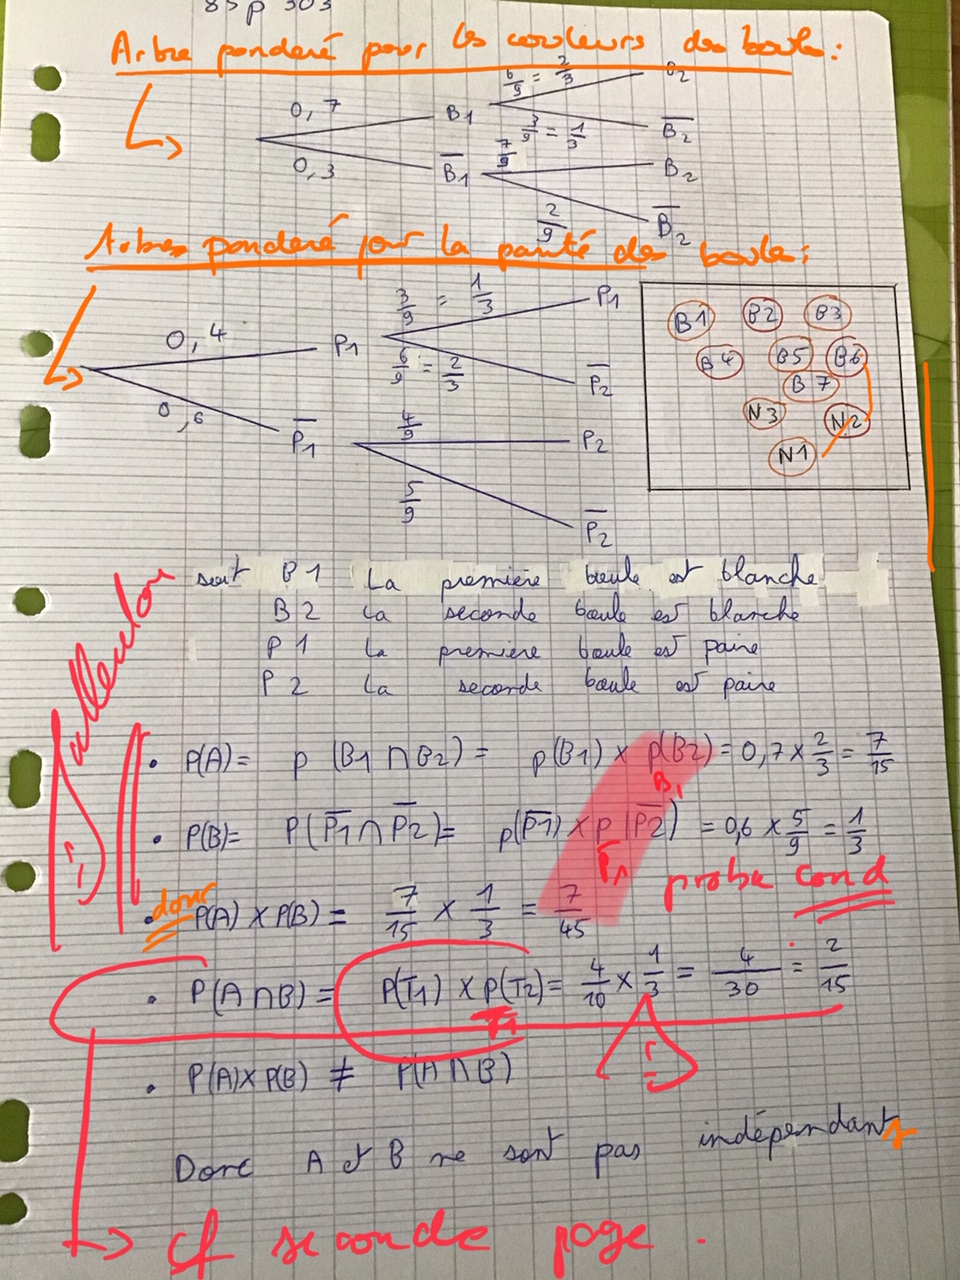 85 p 303
Arbre ponderé pour les couleurs des boules :
0,7 B1 6/9 = 2/3 B2
3/9 = 1/3 B̅2
0,3 B̅1 7/9 B2
2/9 B̅2
Arbres ponderé pour la parité des boules :
0,4 P1 3/9 = 1/3 P1
6/9 = 2/3 P̅2
0,6 P̅1 4/9 P2
5/9 P̅2
B1 B2 B3
B4 B5 B6
B7
N3 N2
N1
soit B1 La première boule est blanche
B2 La seconde boule est blanche
P1 La première boule est paire
P2 La seconde boule est paire
• P(A) = p (B1 ∩ B2) = p(B1) × p(B2) = 0,7 × 2/3 = 7/15
B1
• P(B) = P(P̅1 ∩ P̅2) = p(P̅1) × p (P̅2) = 0,6 × 5/9 = 1/3
P̅1
proba cond
• donc P(A) × P(B) = 7/15 × 1/3 = 7/45
• P(A ∩ B) = P(T1) × P(T2) = 4/10 × 1/3 = 4/30 = 2/15
T1
• P(A) × P(B) ≠ P(A ∩ B)
Donc A et B ne sont pas indépendants
cf seconde page .